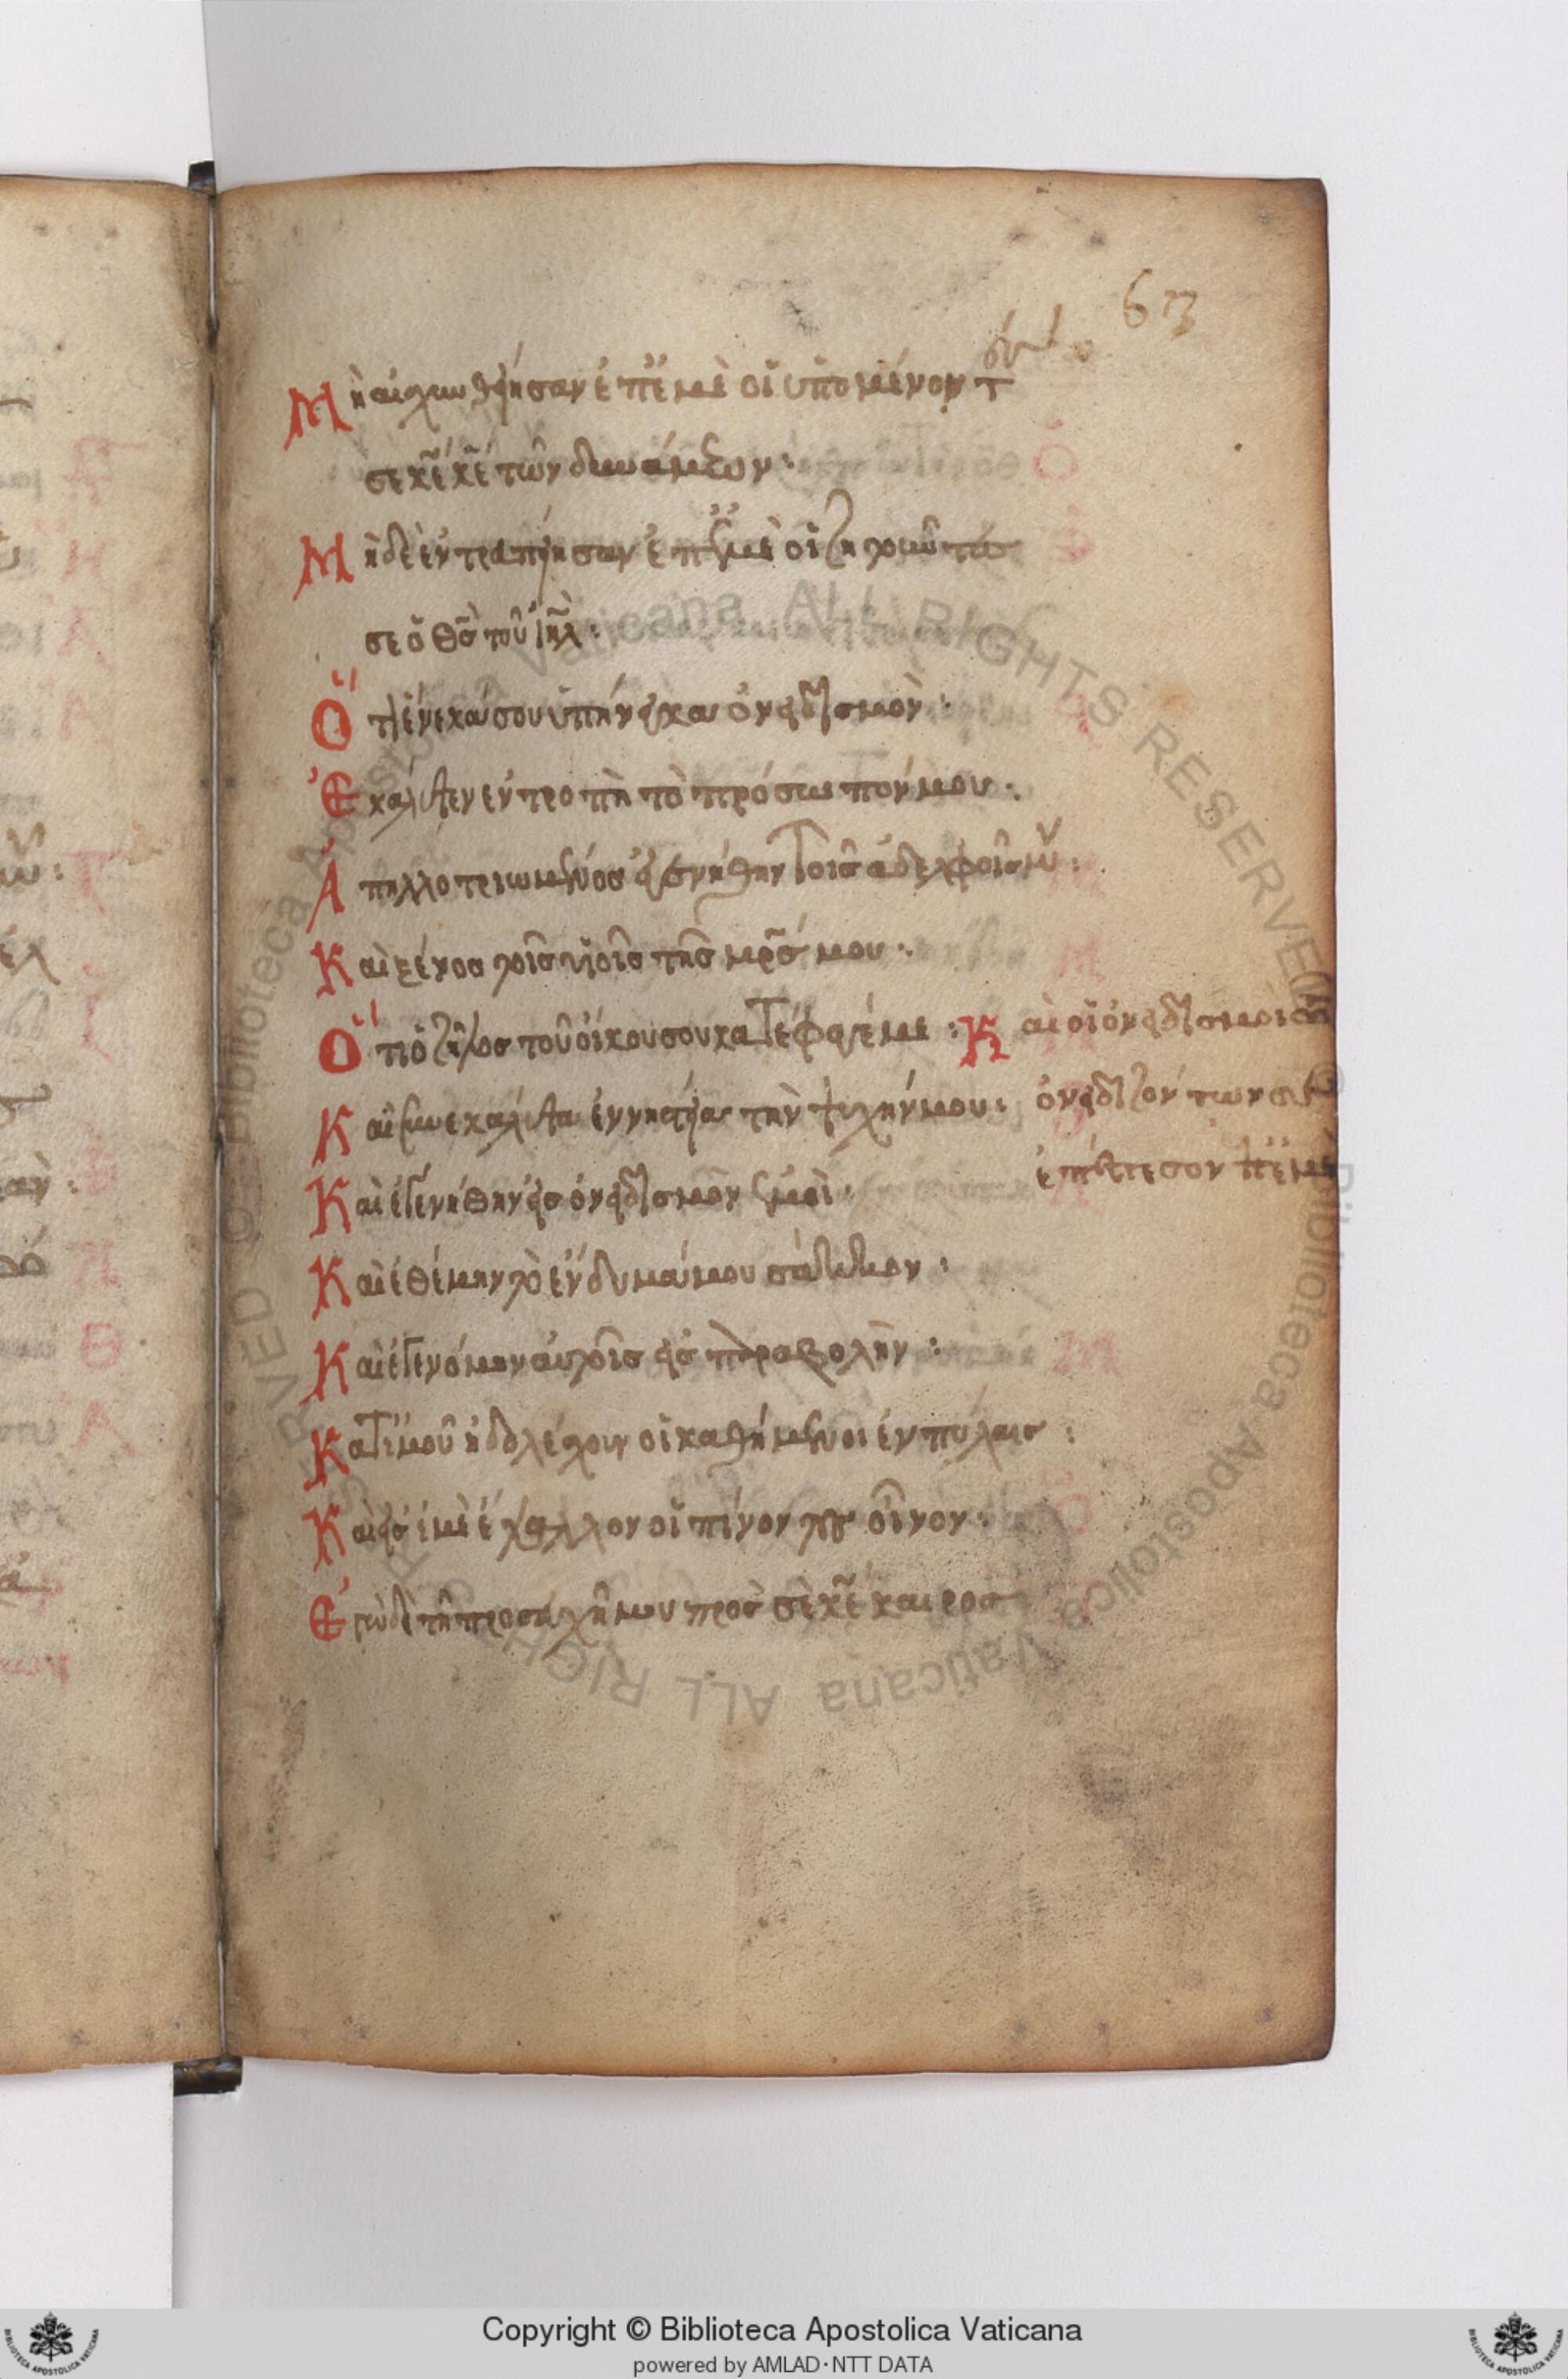 63
Μὴ αἰσχυνθείησαν ἐπ' ἐμὲ οἱ ὑπομένοντ
σε κ̅ε̅ κ̅ε̅ τῶν δυνάμεων:
Μηδὲ ἐντραπείησαν ἐπ' ἐμὲ οἱ ζητοῦντες
σε ὁ θ̅σ̅ τοῦ ι̅η̅λ̅:
Ὅτι ἕνεκά σου ὑπήνεγκα ὀνειδισμὸν:
Ἐκάλυψεν ἐντροπὴ τὸ πρόσωπόν μου:
Ἀπηλλοτριωμένος ἐγενήθην τοῖς ἀδελφοῖς μου:
Καὶ ξένος τοῖς υἱοῖς τῆς μ̅ρ̅σ̅ μου:
Ὅτι ὁ ζῆλος τοῦ οἴκου σου κατέφαγέ με: Καὶ οἱ ὀνειδισμοὶ
Καὶ συνεκάλυψα ἐν νηστείᾳ τὴν ψυχήν μου: ὀνειδιζόντων σε
Καὶ ἐγενήθην εἰς ὀνειδισμὸν ἐμοὶ: ἐπέπεσον ἐπ' ἐμὲ
Καὶ ἐθέμην τὸ ἔνδυμά μου σάκκον:
Καὶ ἐγενόμην αὐτοῖς εἰς παραβολὴν:
Κατ' ἐμοῦ ἠδολέσχουν οἱ καθήμενοι ἐν πύλαις:
Καὶ εἰς ἐμὲ ἔψαλλον οἱ πίνοντες οἶνον:
Ἐγὼ δὲ τῇ προσευχῇ μου πρὸς σὲ κ̅ε̅ καιρος
Copyright © Biblioteca Apostolica Vaticana
powered by AMLAD·NTT DATA